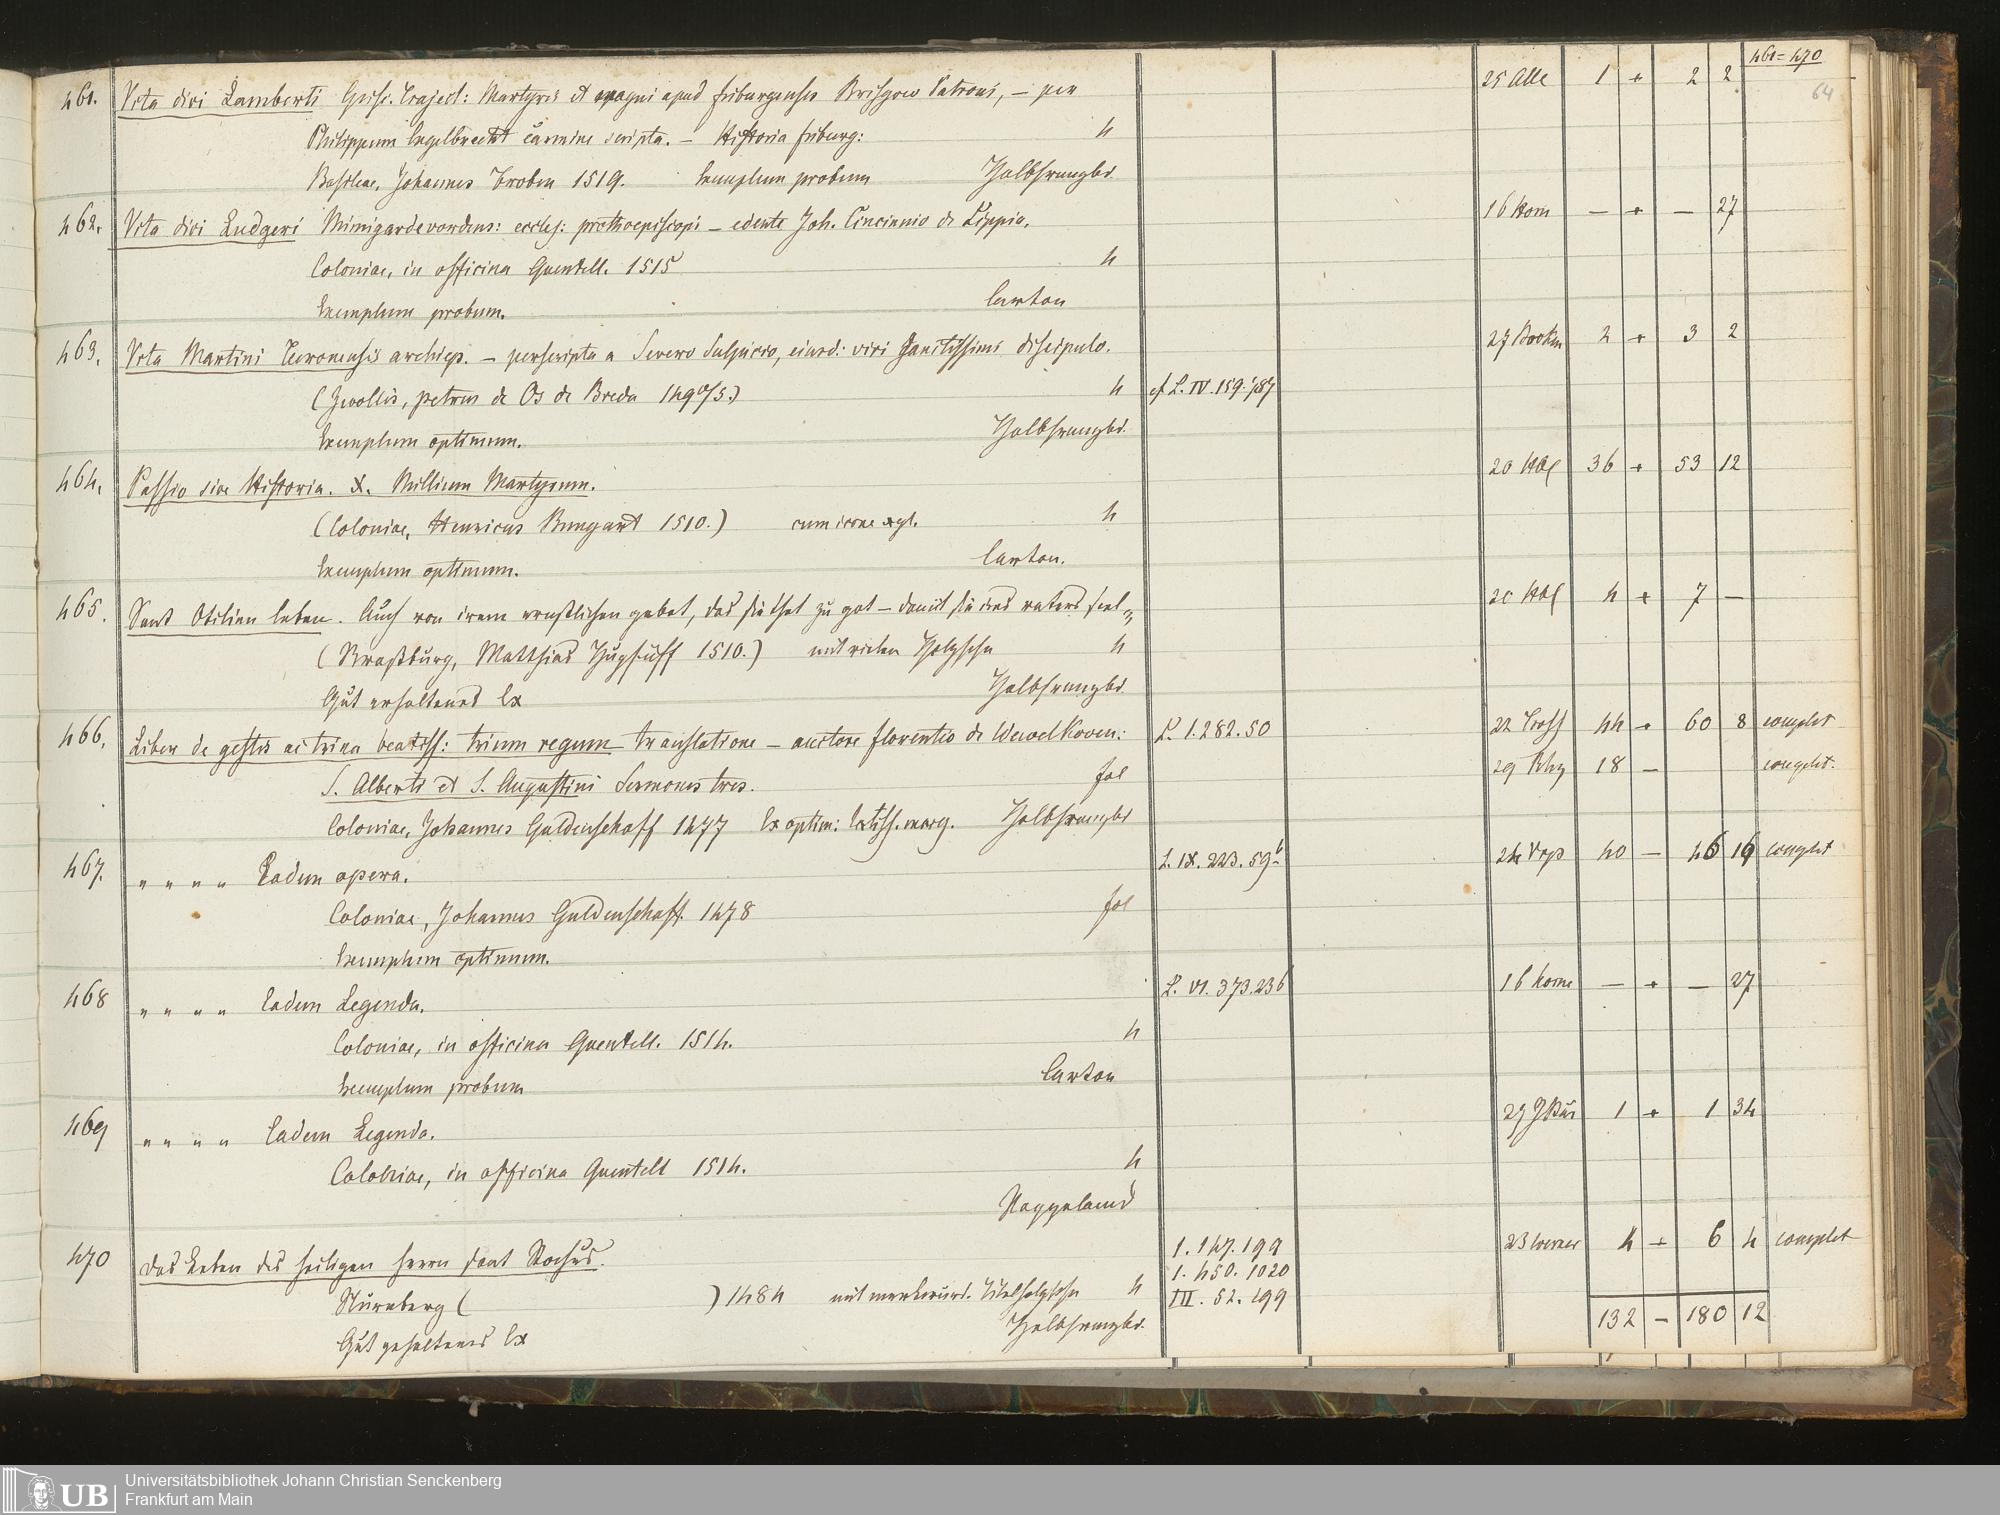 461=470
64
461. Vita divi Lamberti Episc. Traject: Martyris et magni apud friburgenses Brisgow Patroni, – per 25 Alle 1 + 2 2
Philippum Engelbrecht carmine scripta. – Historia friburg: 4
Basileae, Johannes Froben 1519. Exemplum probum Halbfranzbd.
462. Vita divi Ludgeri Mimigardevordens: eccles: prothoepiscopi – edente Joh. Cincinnio de Lippia. 16 Horn – + – 27
Coloniae, in officina Quentell. 1515 4
Exemplum probum. Carton
463. Vita Martini Turonensis archiep. – perscripta a Severo Sulpicio, eiusd: viri sanctissimi discipulo. 27 2 + 3 2
(Zwollis, petrus de Os de Breda 1490/5.) 4 cf L. IV. 159. 787
Exemplum optimum. Halbfranzbd.
464. Passio sive Historia. X. Millium Martyrum. 20 36 + 53 12
(Coloniae, Henricus Bungart 1510.) cum icone xyl. 4
Exemplum optimum. Carton.
465. Sant Otilien leben. Auch von irem ernstlichen gebet, das sie thet zu got – damit sie ires vaters seel „ 20 4 + 7 –
(Strassburg, Matthias Hupfuff 1510.) mit vielen Holzschn 4
Gut erhaltenes Ex Halbfranzbd.
466. Liber de gestis ac trina beatiss: trium regum translatione – auctore florentio de Wevelkoven: L. 1. 282. 50 22 44 + 60 8 complet
S. Alberti et S. Augustini Sermones tres. fol 29 18 – complet.
Coloniae, Johannes Guldenschaff 1477 Ex optim: latiss. marg. Halbfranzbd
467. „ „ „ „ Eadem opera. L. IX. 223. 59b 24 40 – 46 16 complet
Coloniae, Johannes Guldenschaff. 1478 fol
Exemplum optimum.
468 „ „ „ „ Eadem Legenda. L. VI. 373. 236 16 Horne – + – 27
Coloniae, in officina Quentell. 1514. 4
Exemplum probum Carton
469 „ „ „ „ Eadem Legenda. 27 1 + 1 34
Coloniae, in officina Quentell 1514. 4
Pappeband
470 Das Leben des heiligen herrn sant Rochus. 1. 147. 199 23 Werner 4 + 6 4 complet
1. 450. 1020
Nürnberg ( ) 1484 mit merkwürd. Titelholzschn 4 III. 52. 199
Gut gehaltenes Ex Halbfranzbd. 132 – 180 12
UB Universitätsbibliothek Johann Christian Senckenberg
Frankfurt am Main